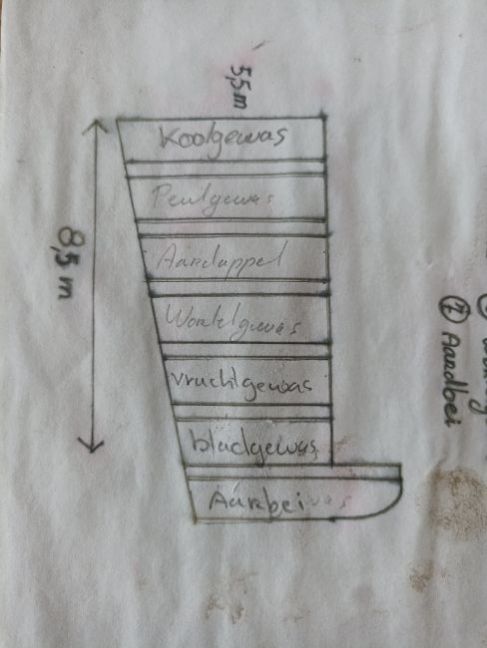 5,5 m
Koolgewas
Peulgewas
Aardappel
Wortelgewas
vruchtgewas
bladgewas
8,5 m
② Aardbei